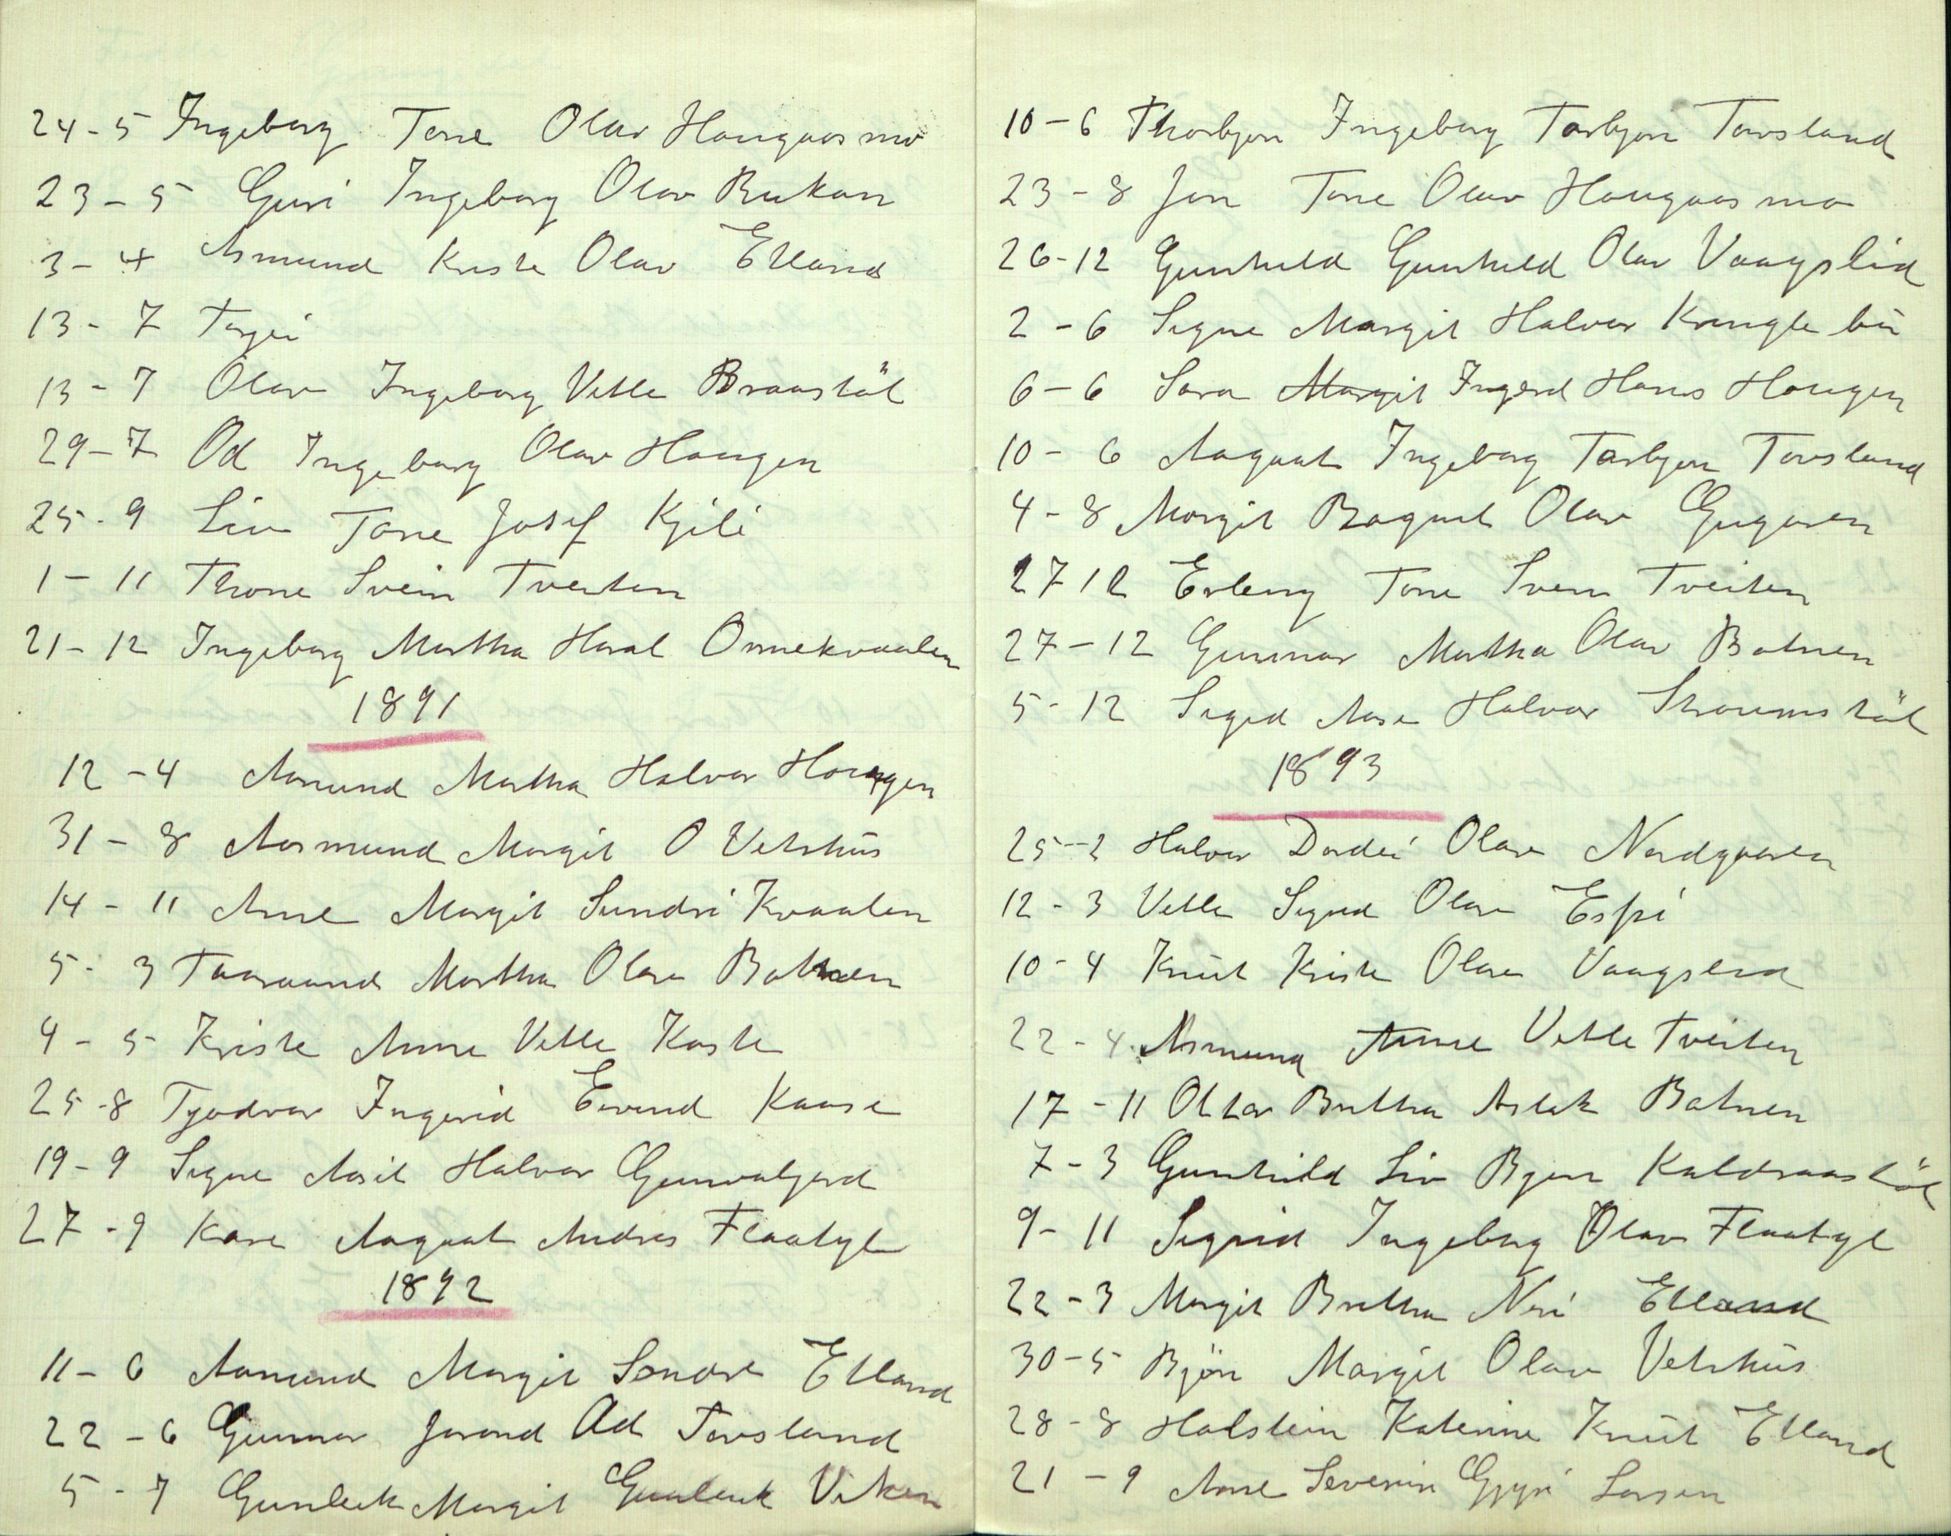 24-5 Ingeborg Tone Olav Haugaasmo
23-5 Guri Ingeborg Olav Bukan
3-4 Asmund Kriste Olav Edland
13-7 Torgei
13-7 Olav Ingeborg Vetle Braastöl
29-7 Od Ingeborg Olav Haugen
25-9 Liv Tone Josef Kjili
1-11 Thone Svein Tveiten
21-12 Ingeborg Martha Haral Onnekvaalen
1891
12-4 Aamund Martha Halvor Haugen
31-8 Aasmund Margit O Vetrhus
14-11 Anne Margit Sundri Kvaalen
5-3 Taaraand Martha Olav Botnen
4-5 Kriste Anne Vetle Kaste
25-8 Tjodvor Ingerid Eivind Kaase
19-9 Signe Aasit Halvor Gunvalgerd
27-9 Kare Aagaat Andres Flaatyl
1892
11-6 Aamund Margit Sondre Edland
22-6 Gunnar Jorond Od Torsland
5-7 Gunleik Margit Gunleik Viken
10-6 Thorbjon Ingeborg Torbjon Torsland
23-8 Jon Tone Olav Haugaasmo
26-12 Gunhild Gunhild Olav Vaagslid
2-6 Signe Margit Halvor Kringlebu
6-6 Sara Margit Ingerd Hans Haugen
10-6 Aagaat Ingeborg Torbjon Torsland
4-8 Margit Bagnet Olav Gugaren
27 12 Erling Tone Svein Tveiten
27-12 Gunnar Martha Olav Botnen
5-12 Sigrid Aase Halvor Straumstöl
1893
25-2 Halvor Dordei Olav Nordgaarden
12-3 Vetle Sigrid Olav Espi
10-4 Knut Kriste Olav Vaagslid
22-4 Asmund Anne Vetle Tveiten
17-11 Ottar Britha Aslak Botnen
7-3 Gunhild Liv Bjen Kaldraastöl
9-11 Sigrid Ingeborg Olav Flaatyl
22-3 Margit Britha Neri Edland
30-5 Bjön Margit Olav Vetrhus
28-8 Halstein Katerine Knut Edland
21-9 Anne Severin Gyri Larsen